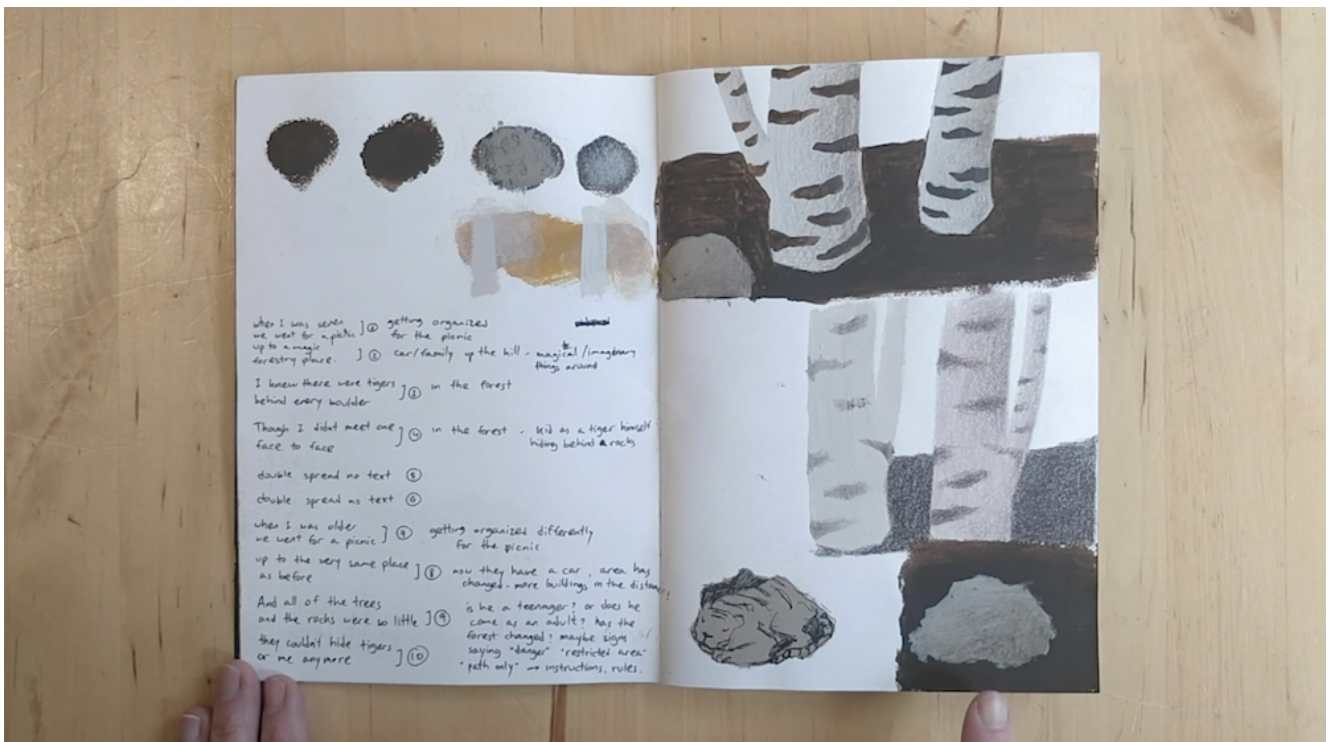 when I was seven
we went for a picnic
up to a magic
forestry place.
] ① getting organized
for the picnic
] ② car/family up the hill - magical/imaginary
things around
I knew there were tigers
behind every boulder
] ③ in the forest
Though I didnt meet one
face to face
] ④ in the forest - kid as a tiger himself
hiding behind rocks
double spread no text ⑤
double spread no text ⑥
when I was older
we went for a picnic
] ⑦ getting organized differently
for the picnic
up to the very same place
as before
] ⑧ now they have a car, area has
changed - more buildings in the distance!
And all of the trees
and the rocks were so little
] ⑨ is he a teenager? or does he
come as an adult? has the
forest changed? maybe signs
saying "danger" "restricted area"
"path only" → instructions, rules.
they couldn't hide tigers
or me anymore
] ⑩